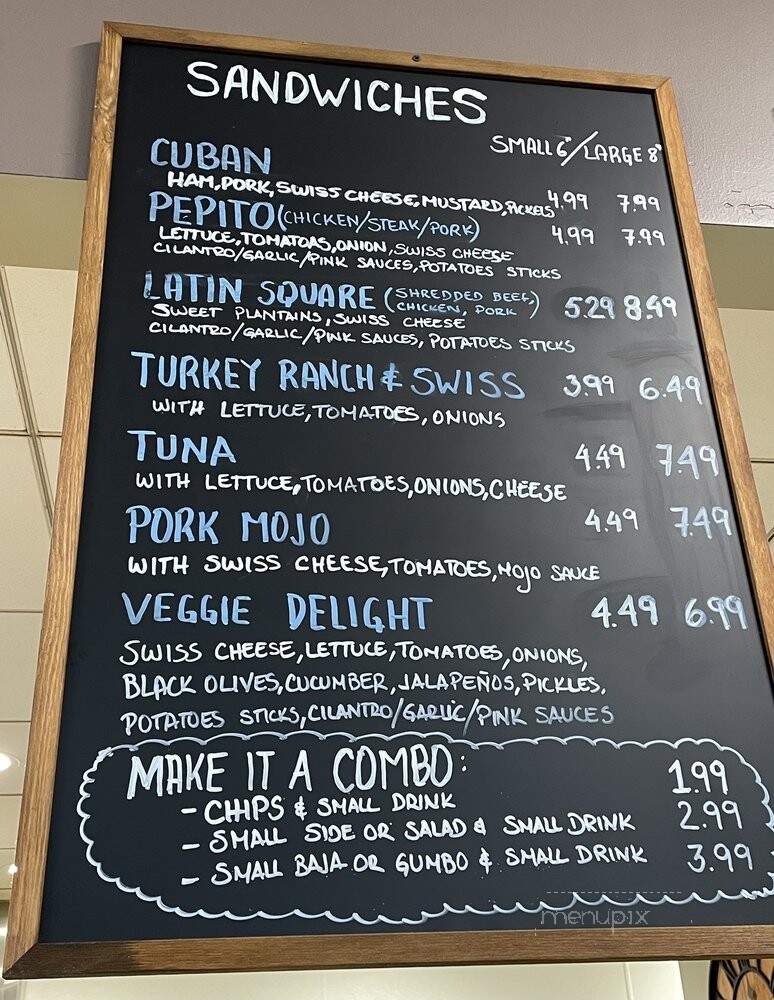 SANDWICHES
SMALL 6"/LARGE 8"
CUBAN
HAM, PORK, SWISS CHEESE, MUSTARD, PICKELS 4.99 7.99
PEPITO (CHICKEN/STEAK/PORK) 4.99 7.99
LETTUCE, TOMATOAS, ONION, SWISS CHEESE
CILANTRO/GARLIC/PINK SAUCES, POTATOES STICKS
LATIN SQUARE (SHREDDED BEEF, CHICKEN, PORK) 5.29 8.49
SWEET PLANTAINS, SWISS CHEESE
CILANTRO/GARLIC/PINK SAUCES, POTATOES STICKS
TURKEY RANCH & SWISS 3.99 6.49
WITH LETTUCE, TOMATOES, ONIONS
TUNA 4.49 7.49
WITH LETTUCE, TOMATOES, ONIONS, CHEESE
PORK MOJO 4.49 7.49
WITH SWISS CHEESE, TOMATOES, MOJO SAUCE
VEGGIE DELIGHT 4.49 6.99
SWISS CHEESE, LETTUCE, TOMATOES, ONIONS,
BLACK OLIVES, CUCUMBER, JALAPEÑOS, PICKLES,
POTATOES STICKS, CILANTRO/GARLIC/PINK SAUCES
MAKE IT A COMBO:
- CHIPS & SMALL DRINK 1.99
- SMALL SIDE OR SALAD & SMALL DRINK 2.99
- SMALL BAJA OR GUMBO & SMALL DRINK 3.99
menupix